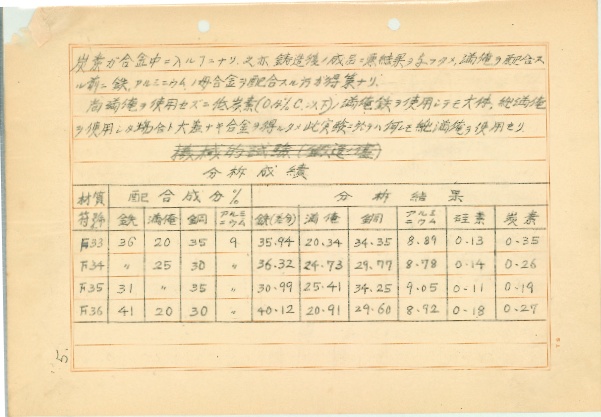 炭素ガ合金中ニ入ルコトニナリ、又ハ鋳造後ノ成品ニ悪結果ヲ与フタメ、満俺ヲ配合ス
ル前ニ鉄、アルミニウムノ母合金ヲ配合スル方ガ得策ナリ.
尚満俺ヲ使用セズニ低炭素(0.4% C 以下)ノ満俺鉄ヲ使用シテモ大体、純満俺
ヲ使用シタ場合ト大差ナキ合金ヲ得ルタメ此実験ニ於テハ何レモ純満俺ヲ使用セリ.
機械的試験(鋳造ノ儘)
分析成績
材質 配合成分% 分析結果
符號 鉄 満俺 銅 アルミニウム 鉄(差分) 満俺 銅 アルミニウム 珪素 炭素
F33 36 20 35 9 35.94 20.34 34.35 8.89 0.13 0.35
F34 〃 25 30 〃 36.32 24.73 29.77 8.78 0.14 0.26
F35 31 〃 35 〃 30.99 25.41 34.25 9.05 0.11 0.19
F36 41 20 30 〃 40.12 20.91 29.60 8.92 0.18 0.27